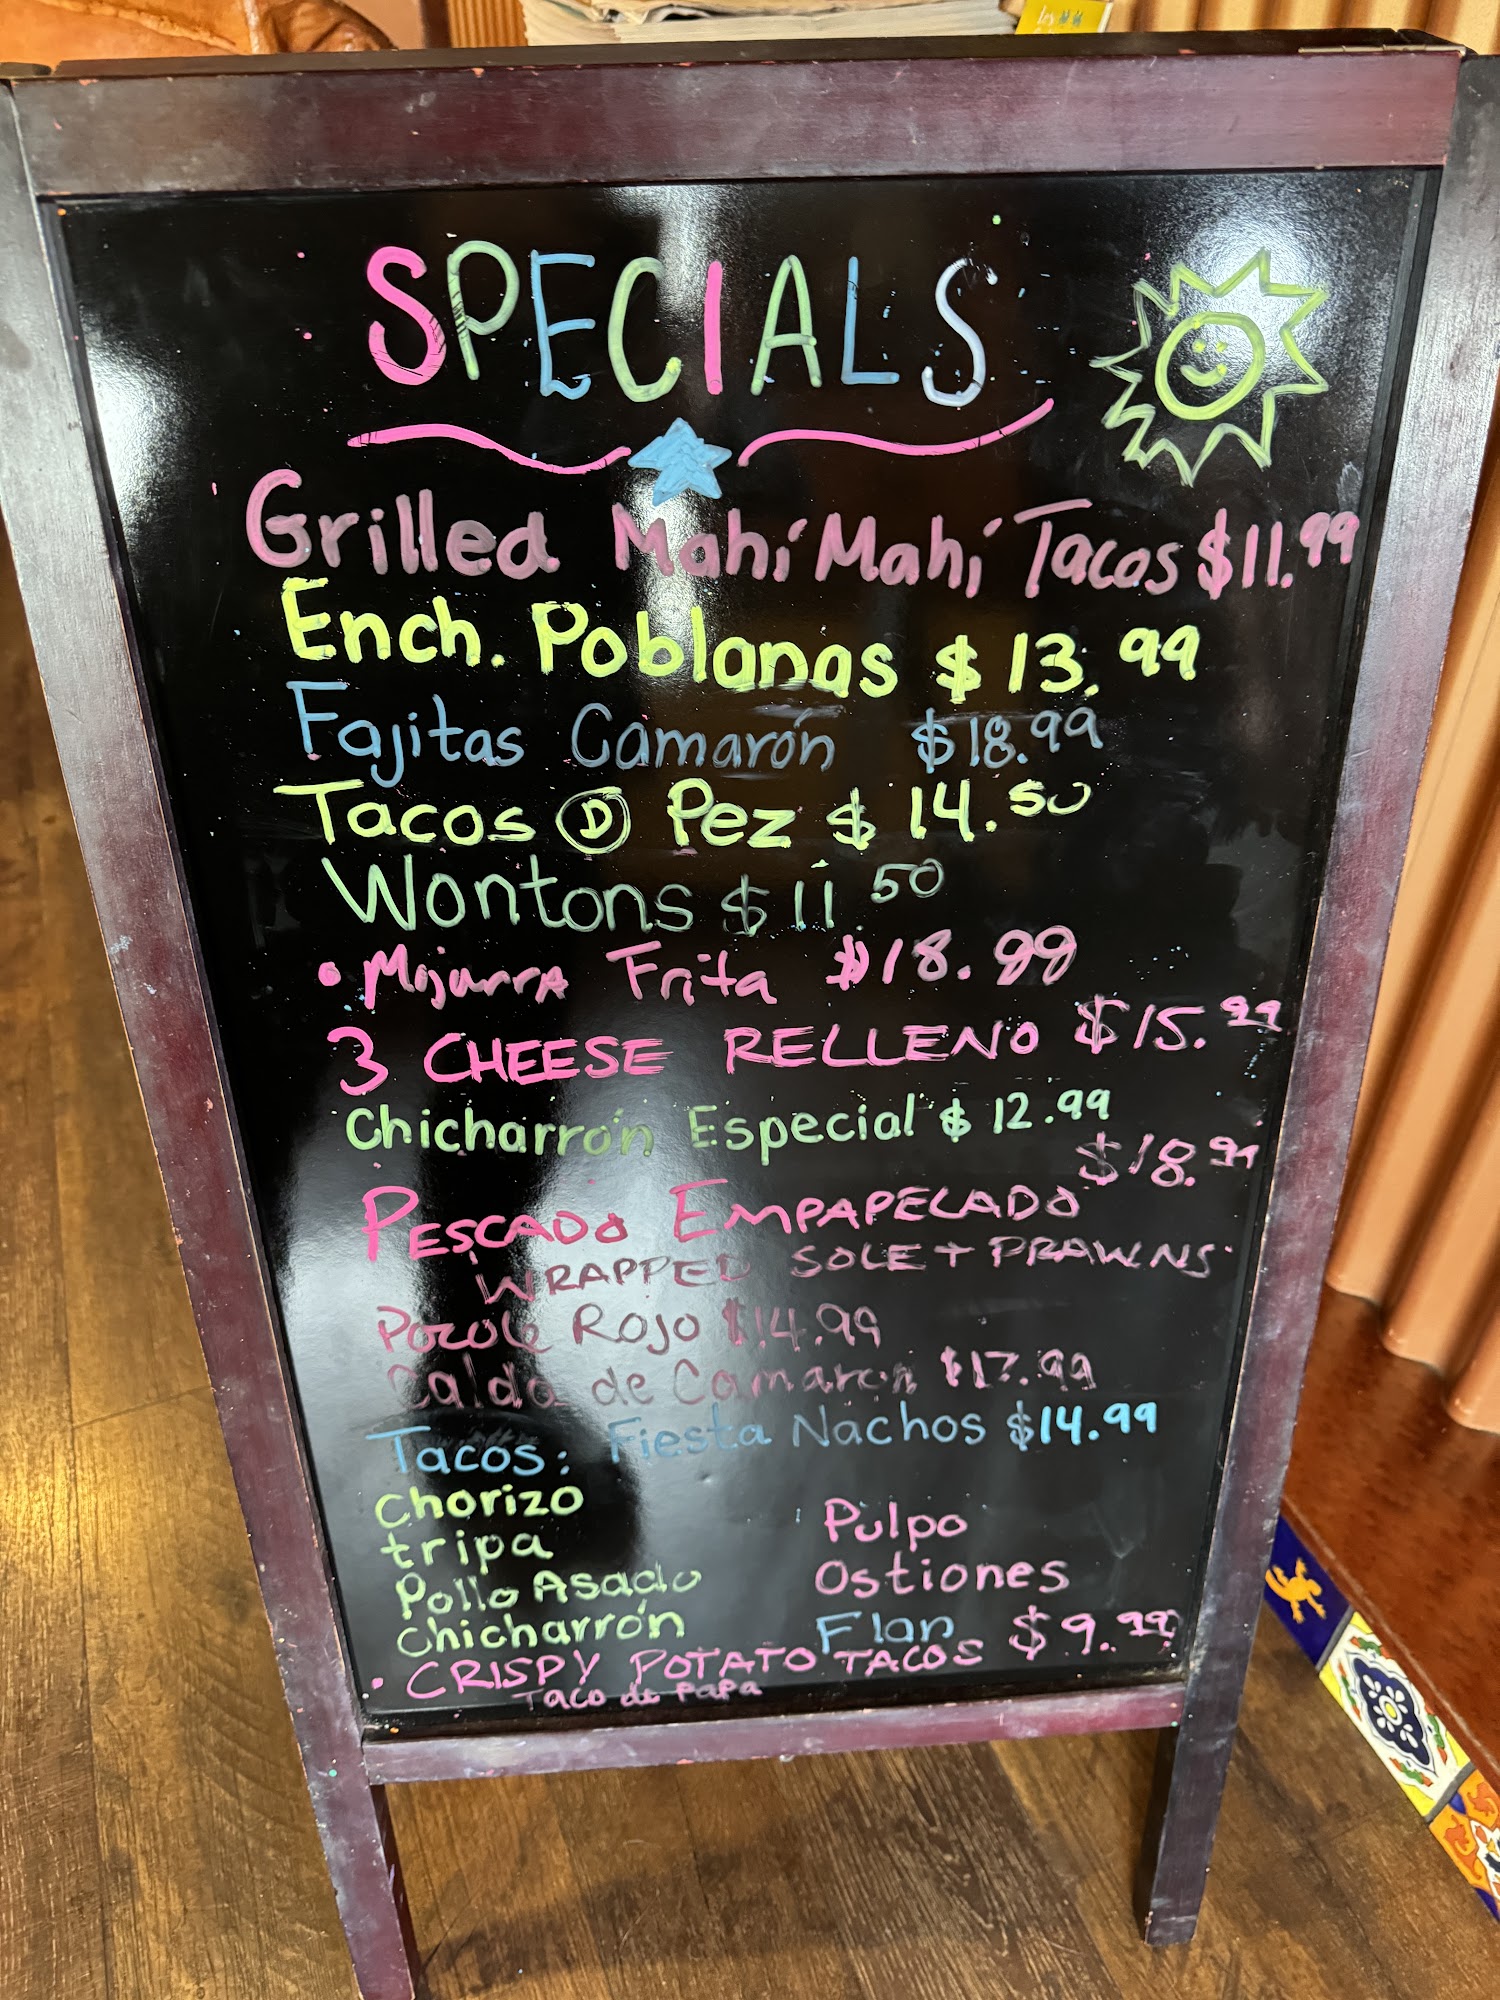 SPECIALS
Grilled Mahí Mahí Tacos $11.99
Ench. Poblanas $13.99
Fajitas Camarón $18.99
Tacos D Pez $14.50
Wontons $11 50
• Mojarra Frita $18.99
3 CHEESE RELLENO $15.99
Chicharrón Especial $12.99
$18.99
PESCADO EMPAPELADO
WRAPPED SOLE + PRAWNS
Pozole Rojo $14.99
Caldo de Camaron $17.99
Tacos: Fiesta Nachos $14.99
Chorizo
Pulpo
tripa
Ostiones
Pollo Asado
Flan
Chicharrón
• CRISPY POTATO TACOS $9.99
Taco de Papa